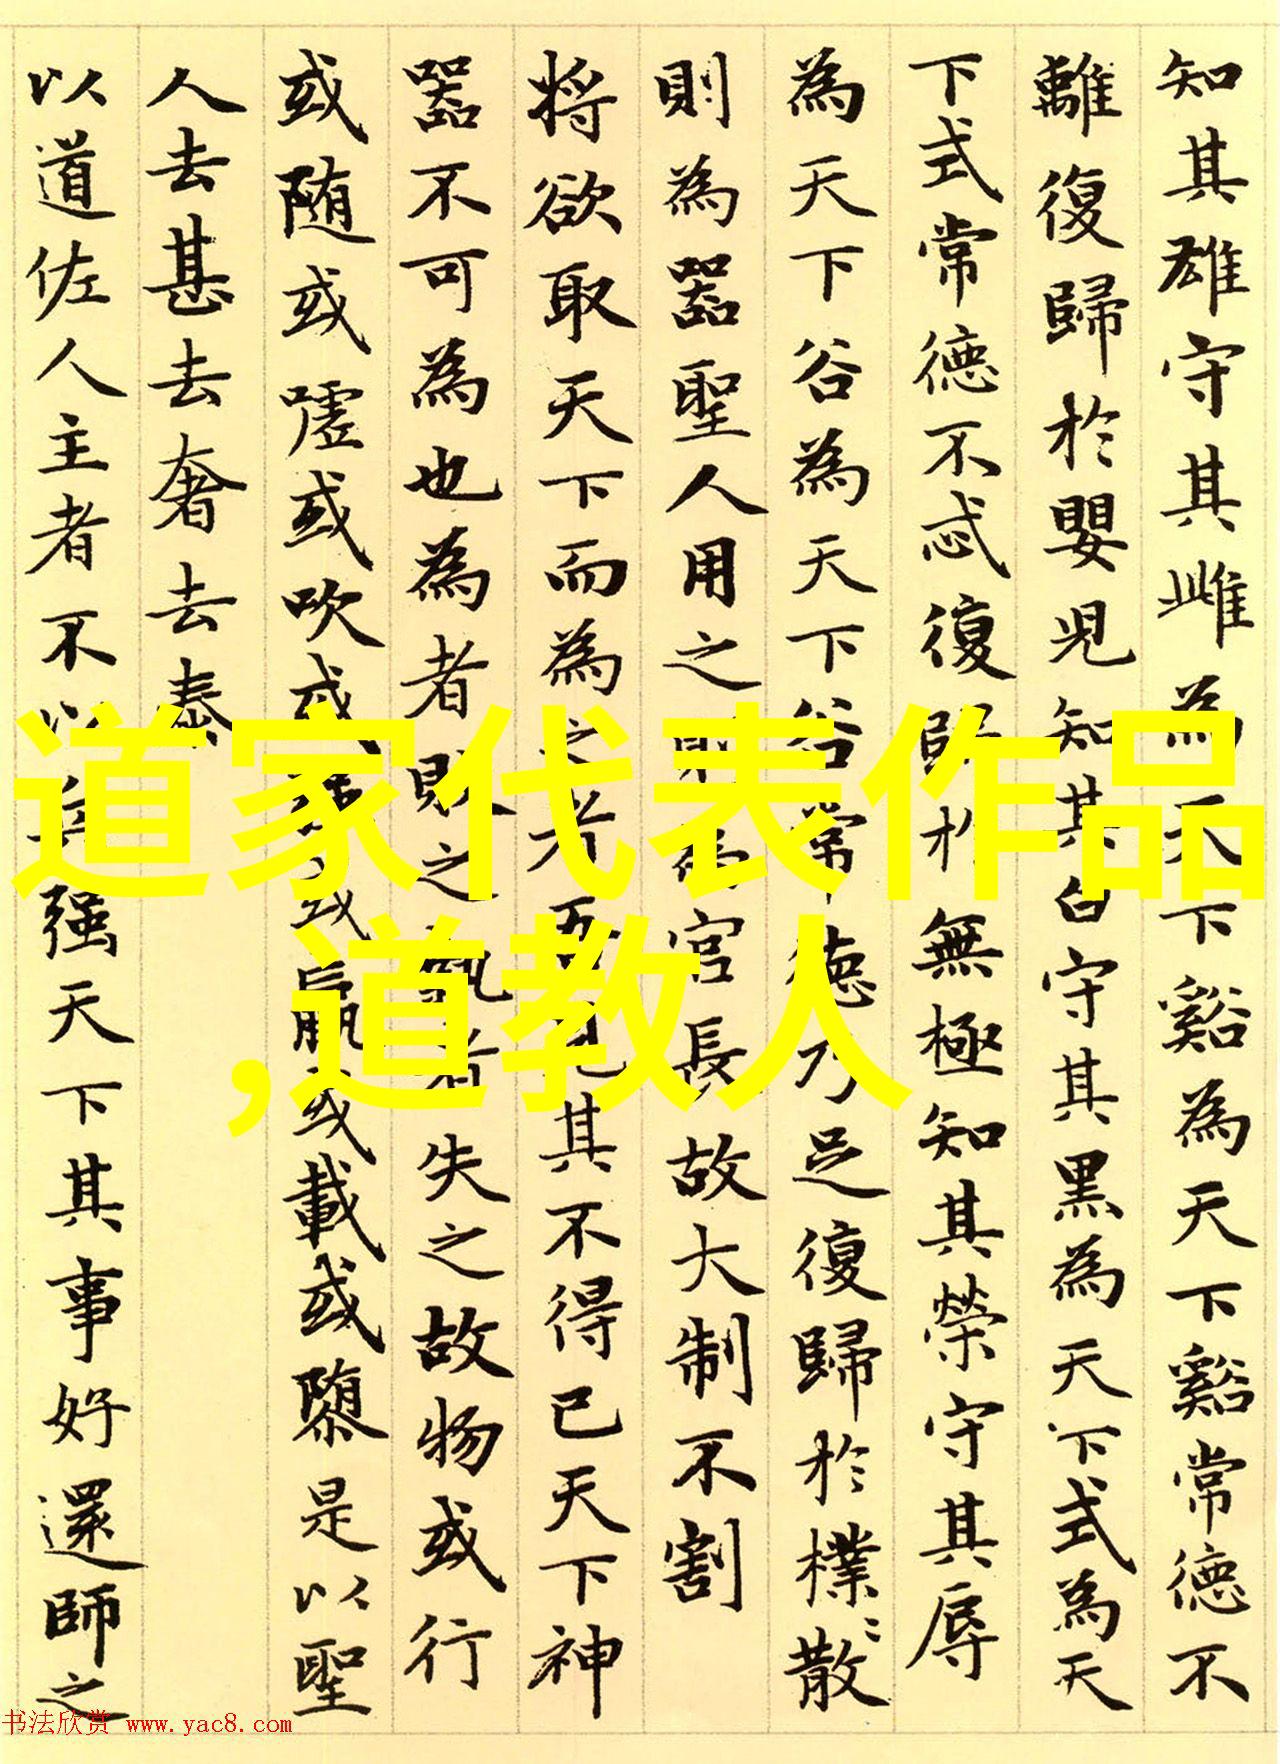 知其雄守其雌為天下谿為天下谿常德不
離復歸於嬰兒知其白守其黑為天下式為天
下式常德不忒復歸於無極知其榮守其辱
為天下谷為天下谷常德乃足復歸於樸〻散
則為器聖人用之則為官長故大制不割
将欲取天下而為之者吾見其不得已天下神
器不可為也為者敗之執者失之故物或行
或随或嘘或吹或或羸或載或隳是以聖
人去甚去奢去泰
以道佐人主者不以兵强天下其事好還師之
道家代表作品
,道教人
书法欣赏 www.yac8.com